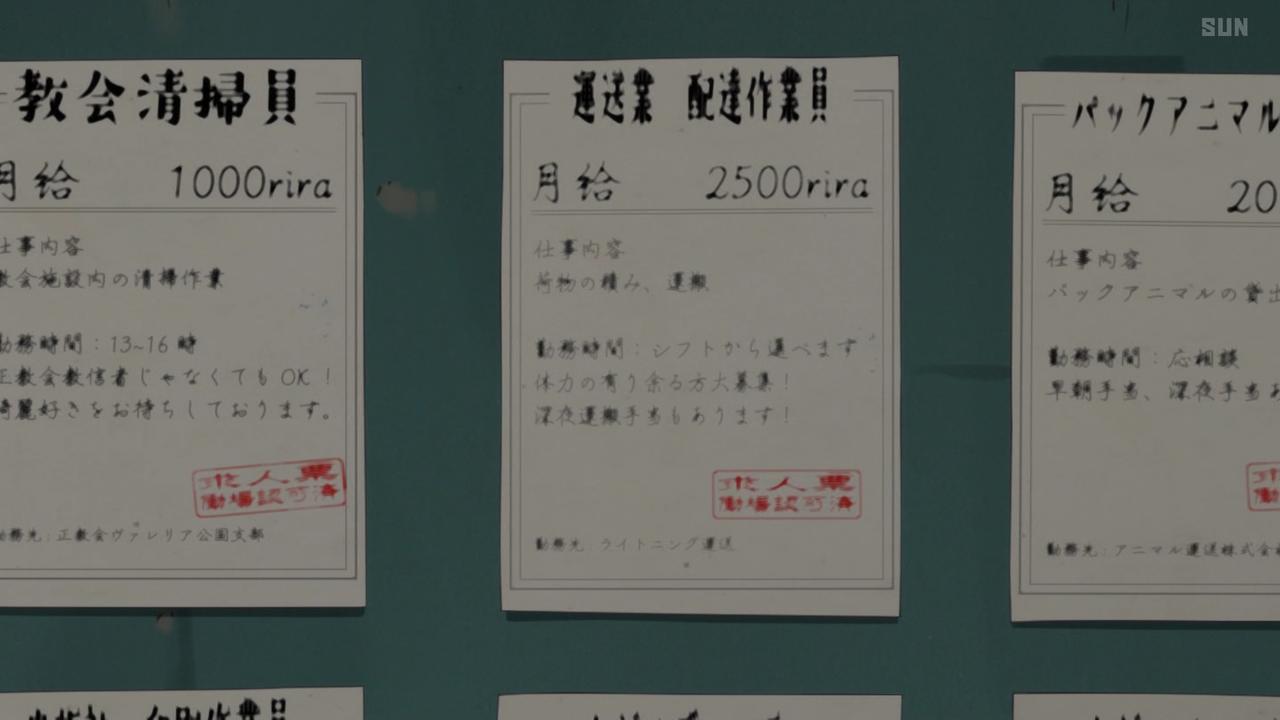 SUN
教会清掃員
月給 1000rira
仕事内容
教会施設内の清掃作業
勤務時間：13~16時
正教会教信者じゃなくてもOK！
綺麗好きをお待ちしております。
求人票
働場認可済
勤務先：正教会ヴァレリア公国支部
運送業 配達作業員
月給 2500rira
仕事内容
荷物の積み、運搬
勤務時間：シフトから選べます
体力の有り余る方大募集！
深夜運搬手当もあります！
求人票
働場認可済
勤務先：ライトニング運送
パックアニマル
月給 20
仕事内容
パックアニマルの貸出
勤務時間：応相談
早朝手当、深夜手当あ
勤務先：アニマル運送株式会社